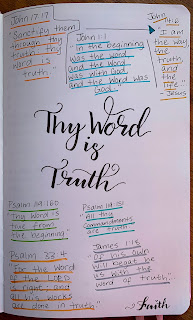 John 17:17
"Sanctify them
through thy
truth: thy
word is
truth."
John 1:1
"In the beginning
was the word
and the Word
was with God
and the Word was
God."
John
14:6
"I am
the way
the
truth
and
the
life."
- Jesus
Thy Word
is
Truth
Psalm 119:160
"Thy word is
true from
the beginning"
Psalm 119:151
"All thy
commandments
are truth"
Psalm 33:4
"For the word
of the LORD is
right; and all
his works
are done in truth."
James 1:18
"Of his own
will begat he
us with the
word of truth"
Faith